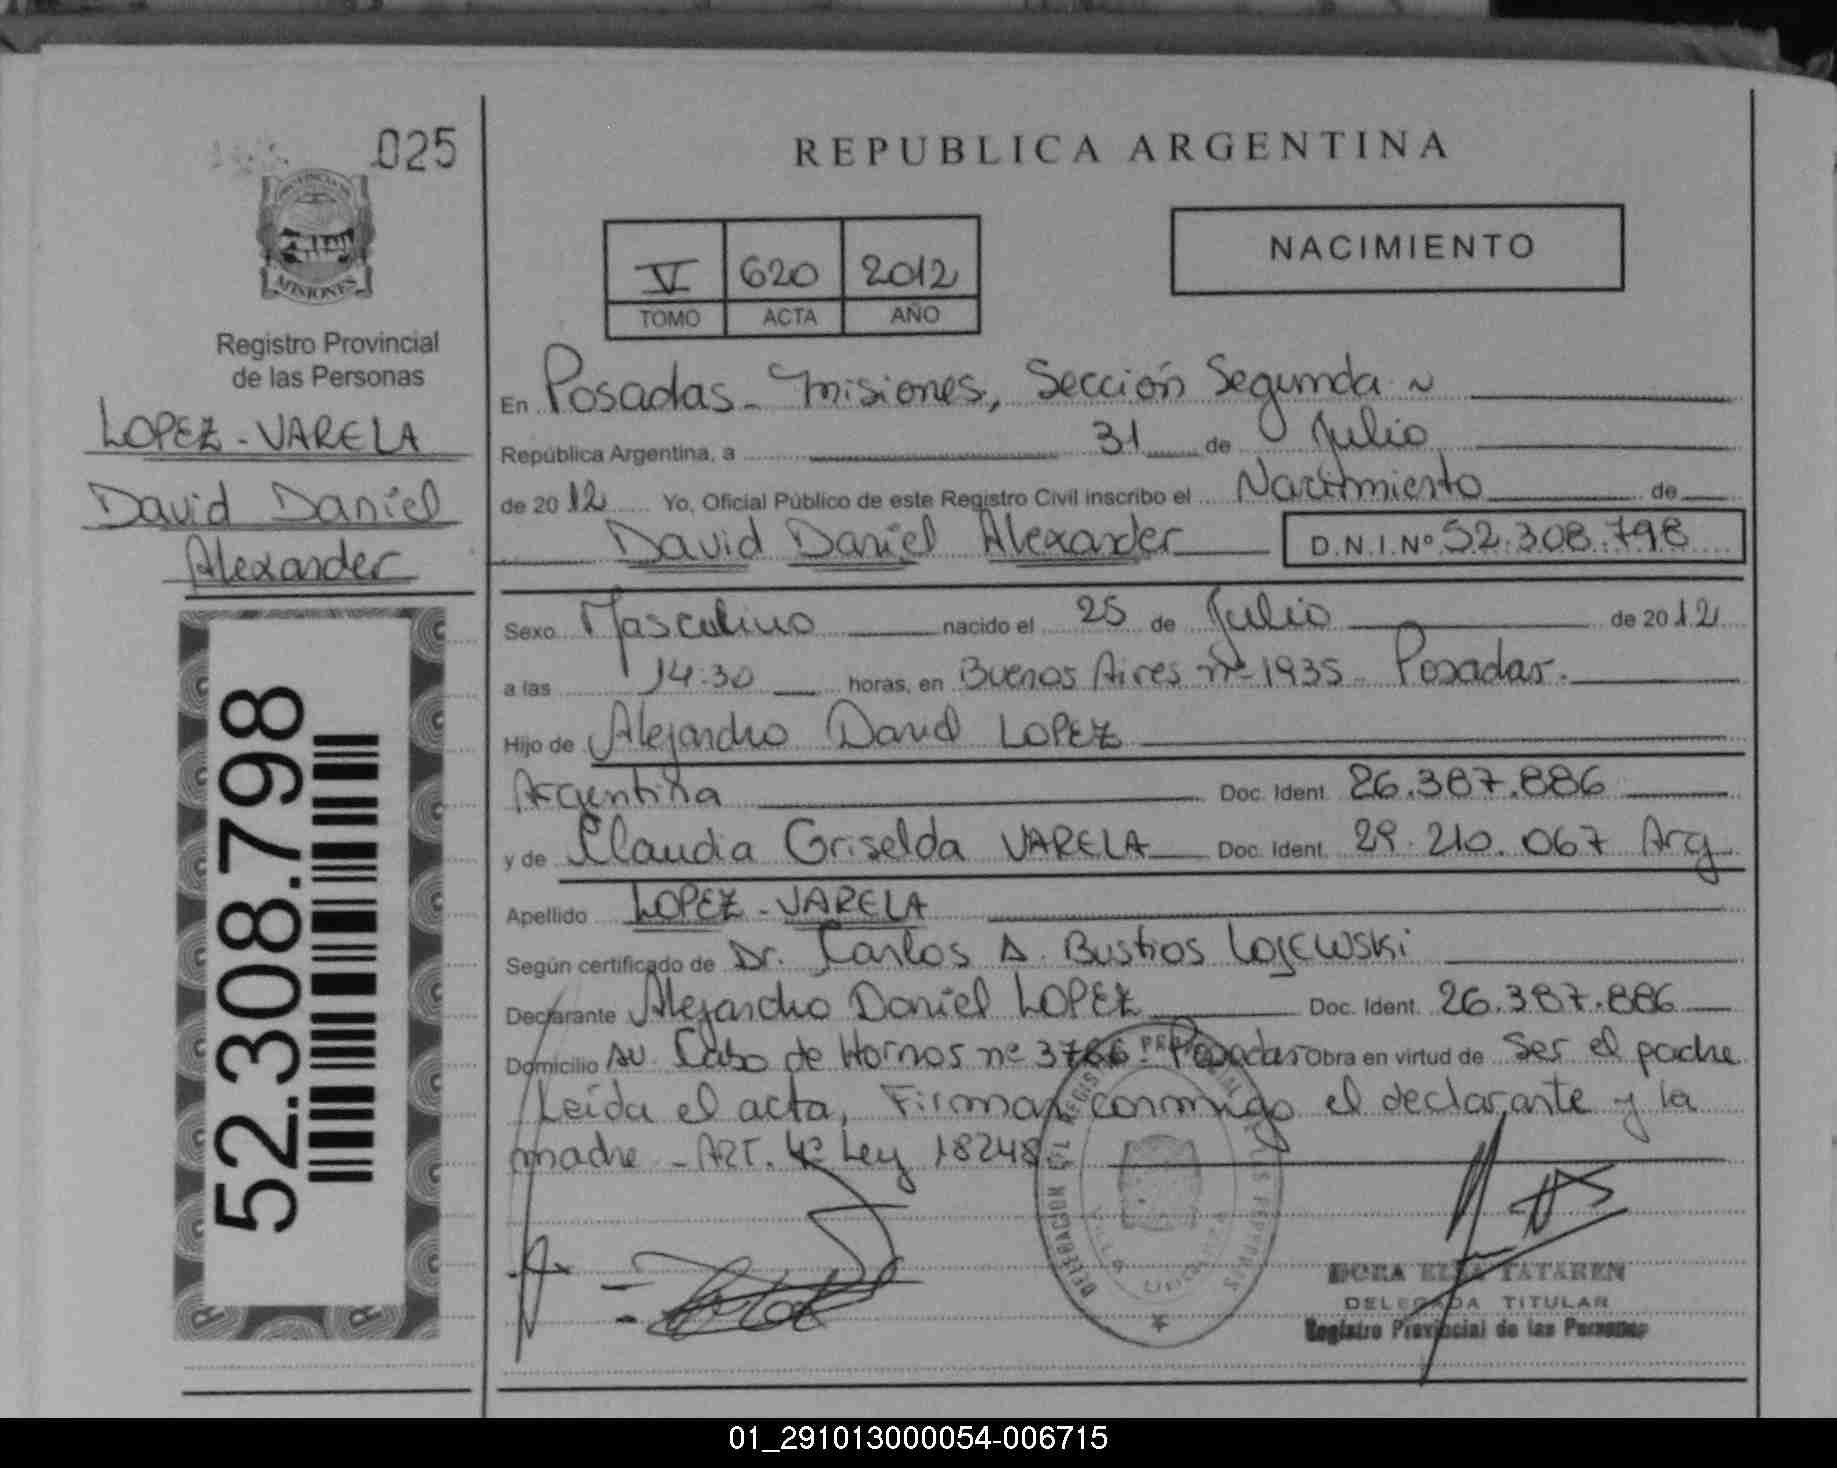 025
PROVINCIA DE
MISIONES
Registro Provincial
de las Personas
LOPEZ - VARELA
David Daniel
Alexander
52.308.798
REPUBLICA ARGENTINA
V 620 2012
TOMO ACTA AÑO
NACIMIENTO
En Posadas - Misiones, Sección Segunda
República Argentina, a 31 de Julio
de 2012 Yo, Oficial Público de este Registro Civil inscribo el Nacimiento de
David Daniel Alexander D.N.I.Nº 52.308.798
Sexo Masculino nacido el 25 de Julio de 2012
a las 14:30 horas, en Buenos Aires nº 1935 - Posadas.
Hijo de Alejandro David LOPEZ
Argentina Doc. Ident. 26.387.886
y de Claudia Griselda VARELA Doc. Ident. 29.210.067 Arg
Apellido LOPEZ - VARELA
Según certificado de Dr. Carlos A. Bustios Lojewski
Declarante Alejandro Daniel LOPEZ Doc. Ident. 26.387.886
Domicilio Av. Cabo de Hornos nº 3766 - Posadas Obra en virtud de Ser el padre
Leída el acta, Firman conmigo el declarante y la
madre - ART. 4º Ley 18248
DORA ELSA TATAREN
DELEGADA TITULAR
Registro Provincial de las Personas
01_291013000054-006715